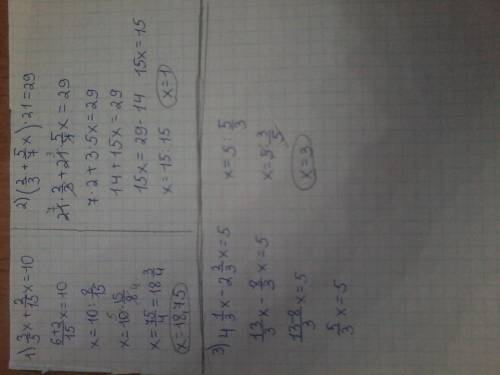 1) 2/3 x + 2/15 x = 10
6+2/15 x = 10
x = 10 : 8/15
x = 10 · 15/8
x = 75/4 = 18 3/4
x = 18,75
2) (2/3 + 5/7 x) · 21 = 29
21 · 2/3 + 21 · 5/7 x = 29
7 · 2 + 3 · 5x = 29
14 + 15x = 29
15x = 29 - 14 15x = 15
x = 15 : 15 x = 1
3) 4 1/3 x - 2 2/3 x = 5
13/3 x - 8/3 x = 5
13-8/3 x = 5
5/3 x = 5
x = 5 : 5/3
x = 5 · 3/5
x = 3